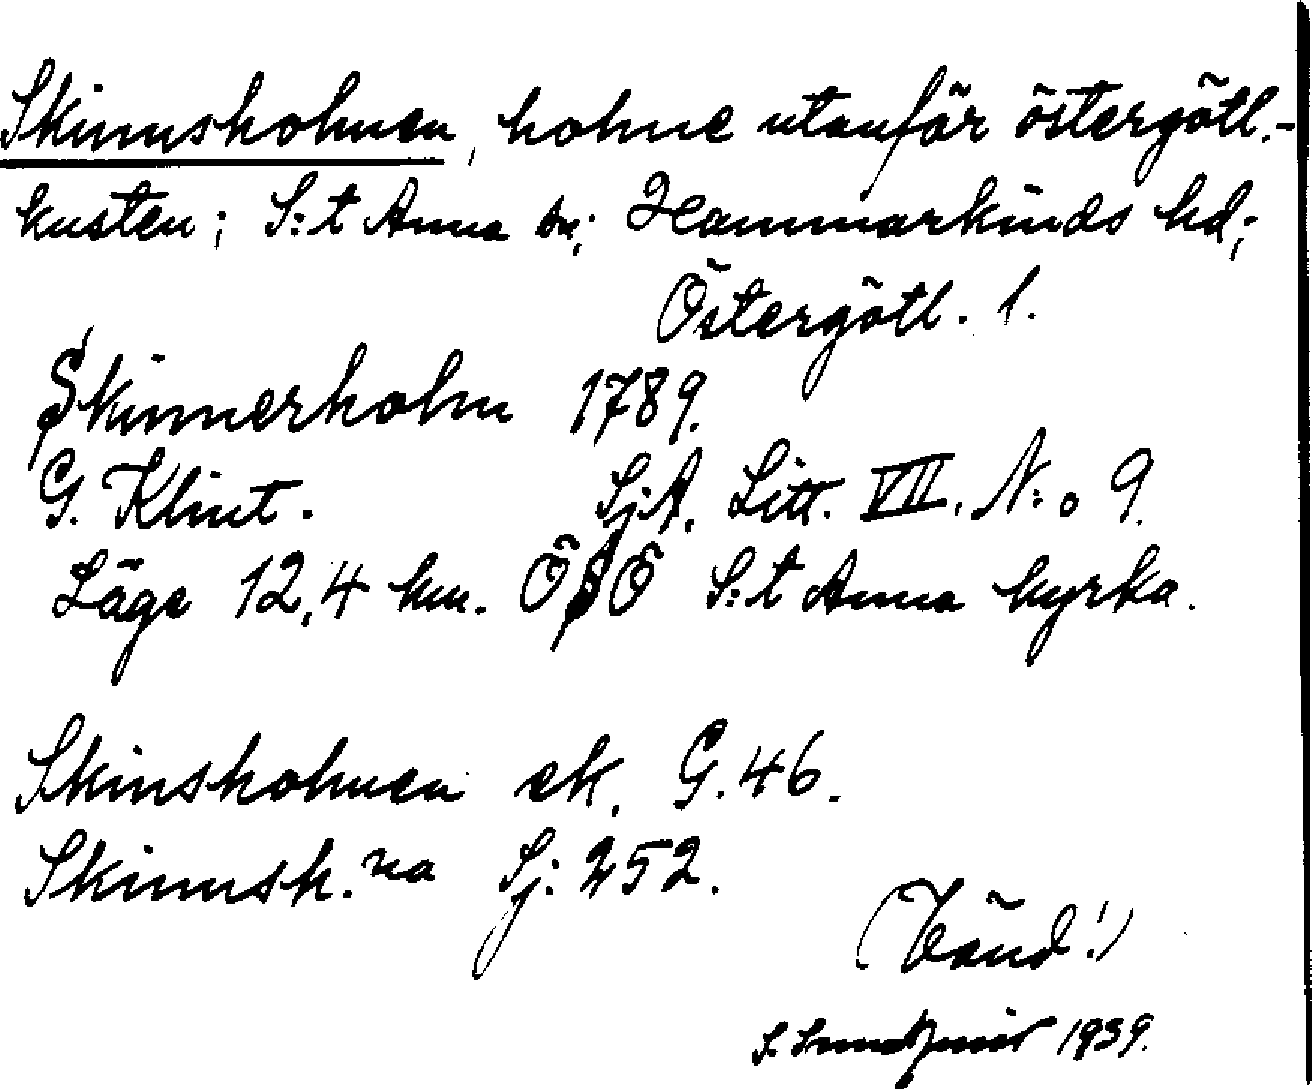 Skinnsholmen, holme utanför östergötl.-
kusten; S:t Anna sn; Hammarkinds hd;
Östergötl. l.
Skinnerholm 1789.
G. Klint. SjA. Litt. VII. N:o 9.
Läge 12,4 km. ÖSÖ S:t Anna kyrka.
Skinsholmen ek. G.46.
Skinnsh.na Sj. 252.
(Vänd!)
S. 1939.